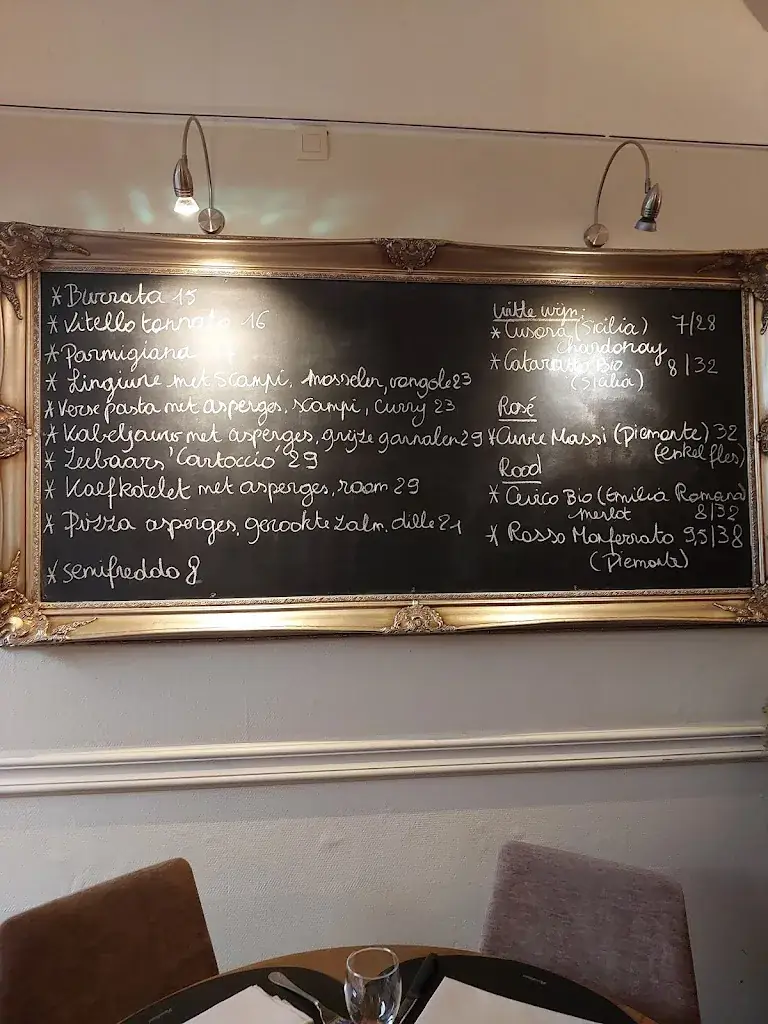 * Burrata 15
* Vitello tonnato 16
* Parmigiana
* Linguine met scampi, mosselen, vongole 23
* Verse pasta met asperges, scampi, curry 23
* Kabeljauw met asperges, grijze garnalen 29
* Zeebaars 'Cartoccio' 29
* Kalfkotelet met asperges, room 29
* Pizza asperges, gerookte zalm, dille 21
* semifreddo 8
witte wijn:
* Cusora (Sicilia) 7/28
Chardonay
* Cataratto Bio 8/32
(Sicilia)
Rosé
* Cuvre Massi (Piemonte) 32
(enkel fles)
Rood
* Cevico Bio (Emilia Romana)
merlot 8/32
* Rosso Monferrato 9,5/38
(Piemonte)